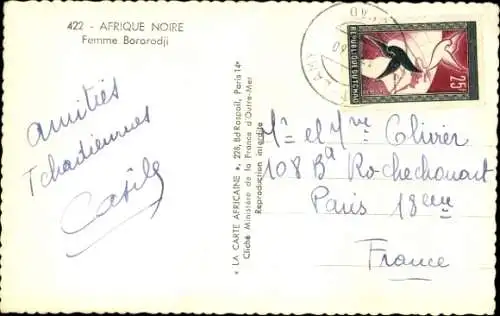 422 - AFRIQUE NOIRE
Femme Bororodji
Amitiés
Tchadiennes
« LA CARTE AFRICAINE », 228, Bd Raspail, Paris 14e
Cliché Ministère de la France d'Outre-Mer
Reproduction interdite
REPUBLIQUE DU TCHAD
25F
Mr et Mme Olivier
108 Bd Rochechouart
Paris 18eme
France